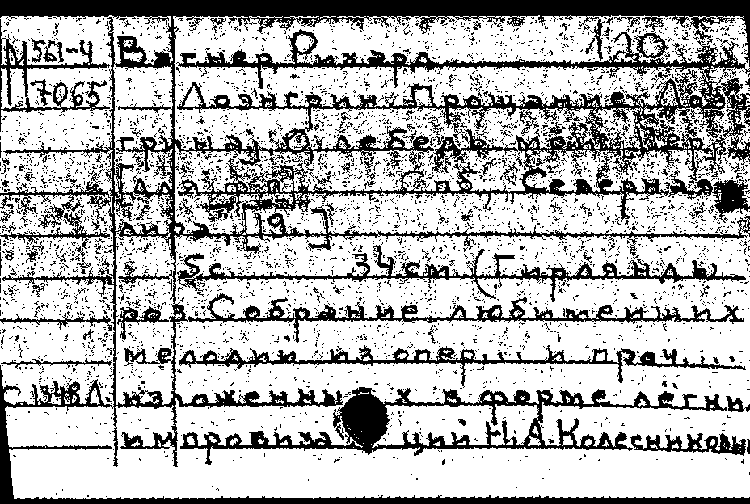 М 561-4 Вагнер, Рихард 120
7065 Лоэнгрин. Прощание Лоэн
грина, О, лебедь мой. Пер.
[для ф-п]. Спб, Северная
лира, [19..]
5с. 34 см (Гирлянды
роз. Собрание любимейших
мелодий из опер... и проч....
С 1348 Л. изложенных в форме лёгки
импровизаций Н.А. Колесниковы